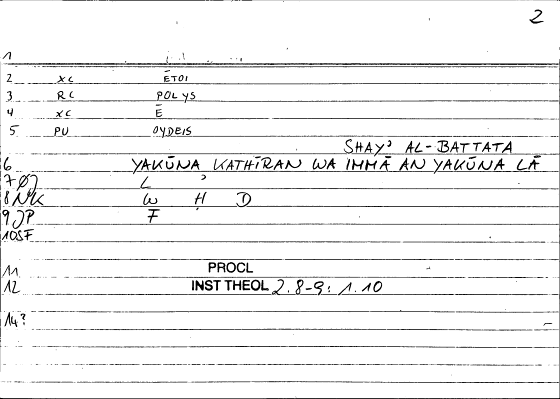 2
1
2 XC ĒTOI
3 RC POLYS
4 XC Ē
5 PU OYDEIS
SHAY' AL-BATTATA
6 YAKŪNA KATHĪRAN WA IMMĀ AN YAKŪNA LĀ
7 ØJ L '
8 NK W Ḥ D
9 JP F
10 SF
11 PROCL
12 INST THEOL 2.8-9: 1.10
14?